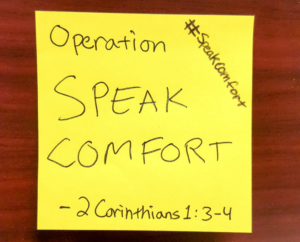 Operation
#SpeakComfort
SPEAK
COMFORT
- 2 Corinthians 1:3-4